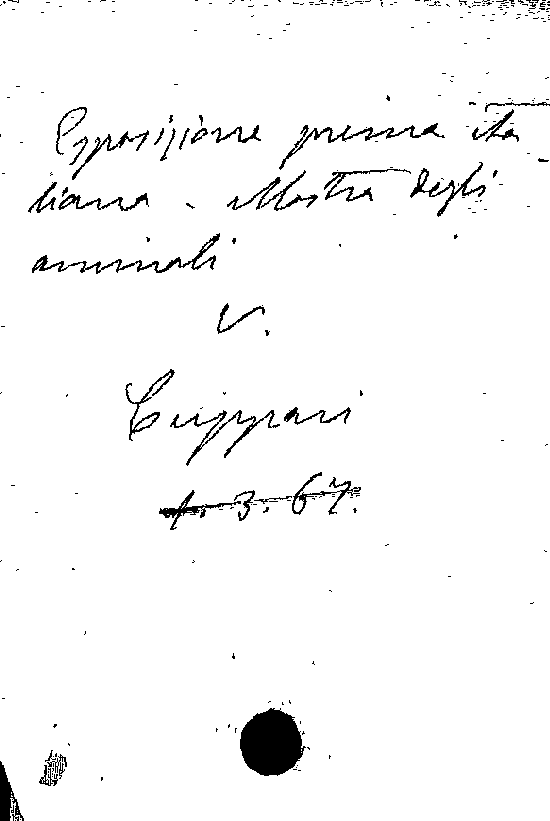 Esposizione prima ita
liana - Mostra degli
animali
V.
Cuppari
1. 3. 67.